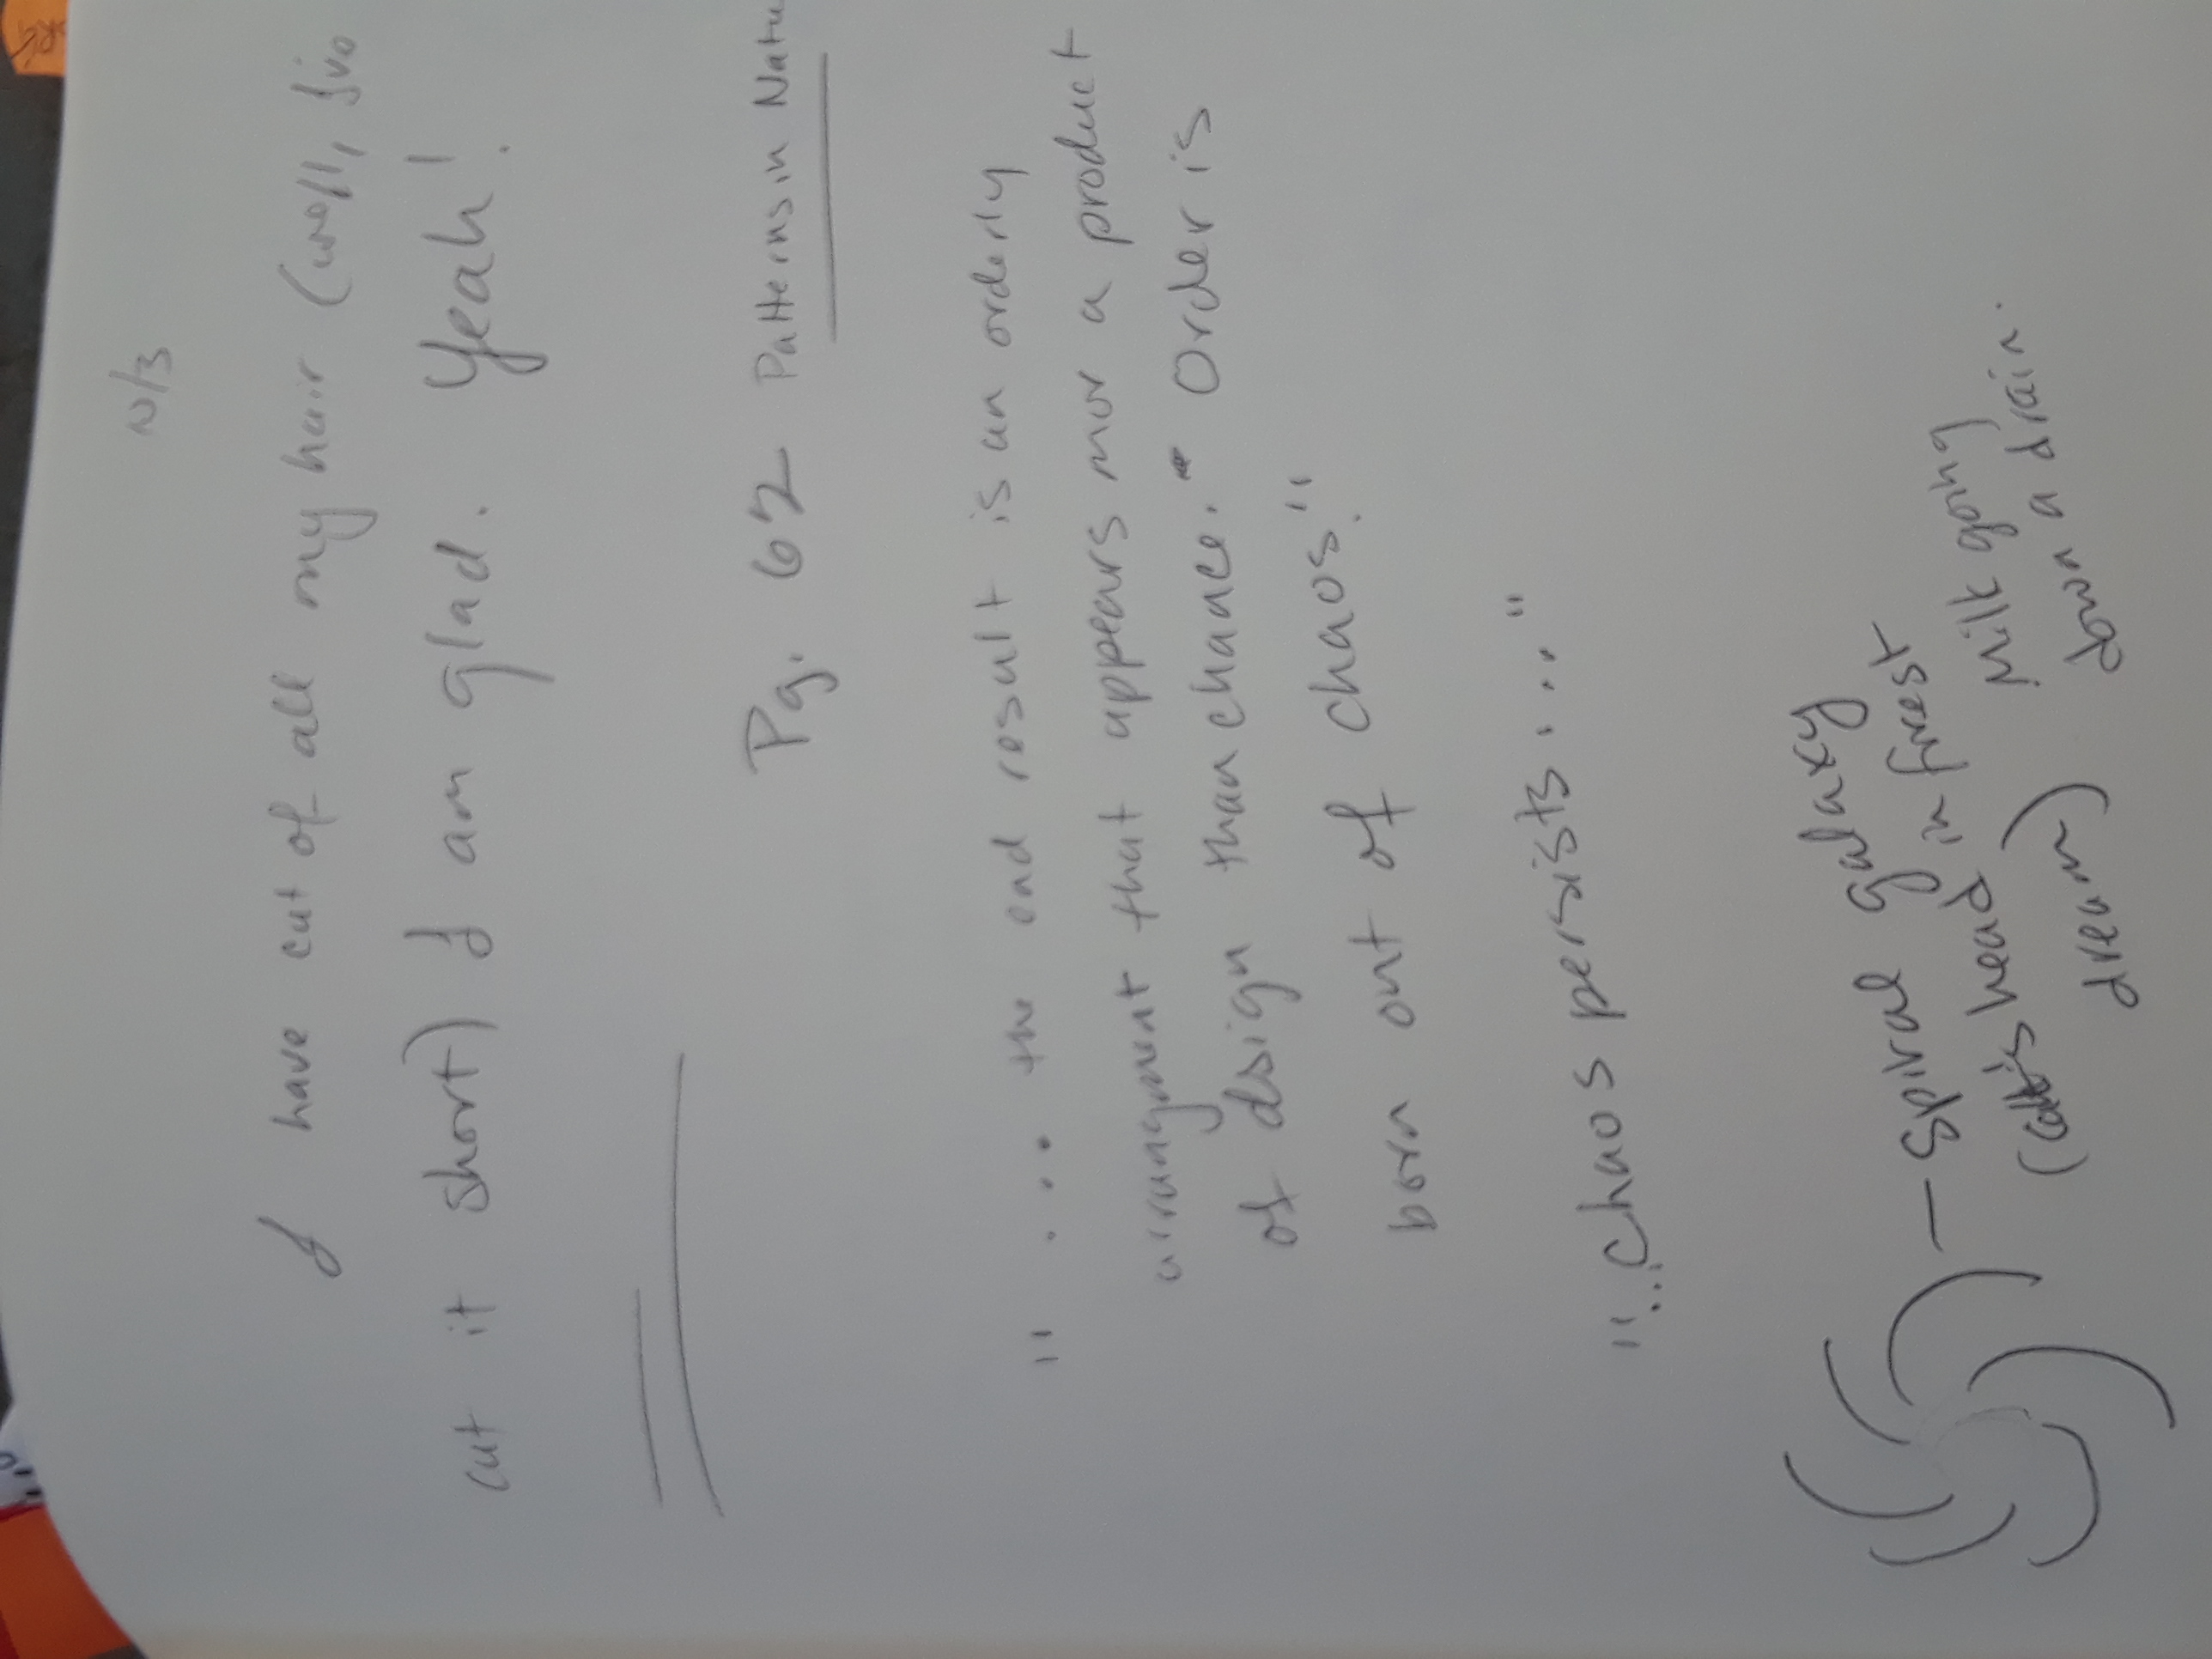 I have cut of all my hair (well,
cut it short) I am glad. Yeah!
Pg. 62 Patterns in Natu
" ... the end result is an orderly
arrangment that appears mor a product
of design than chance. Order is
born out of chaos."
"...Chaos persists..."
— Spiral galaxy
(cat's head in finest
dream)
Milk going
down a drain.